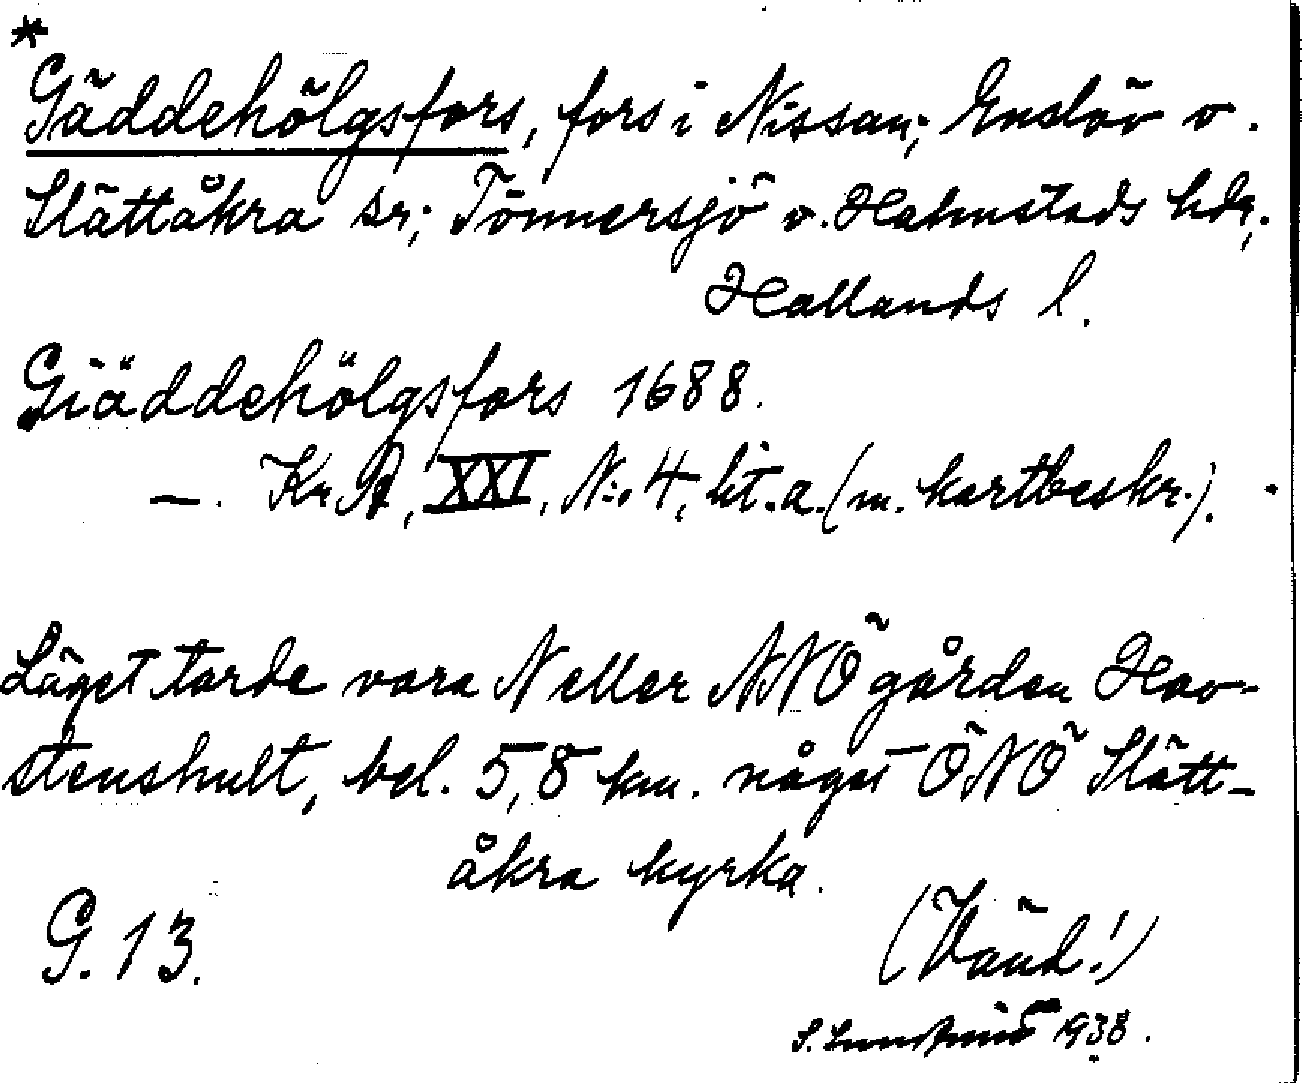 *
Gäddehölgsfors, fors i Nissan; Enslöv o.
Slättåkra snr; Tönnersjö o. Halmstads hdr,
Hallands l.
Giäddehölgsfors 1688.
—. Kr. A, XXI, N:o 4, lit. a. (m. kartbeskr.).
Läget torde vara N eller NNÖ gården Hav-
stenshult, bel. 5,8 km. något ÖNÖ Slätt-
åkra kyrka.
G. 13.
(Vänd!)
S. 1938.